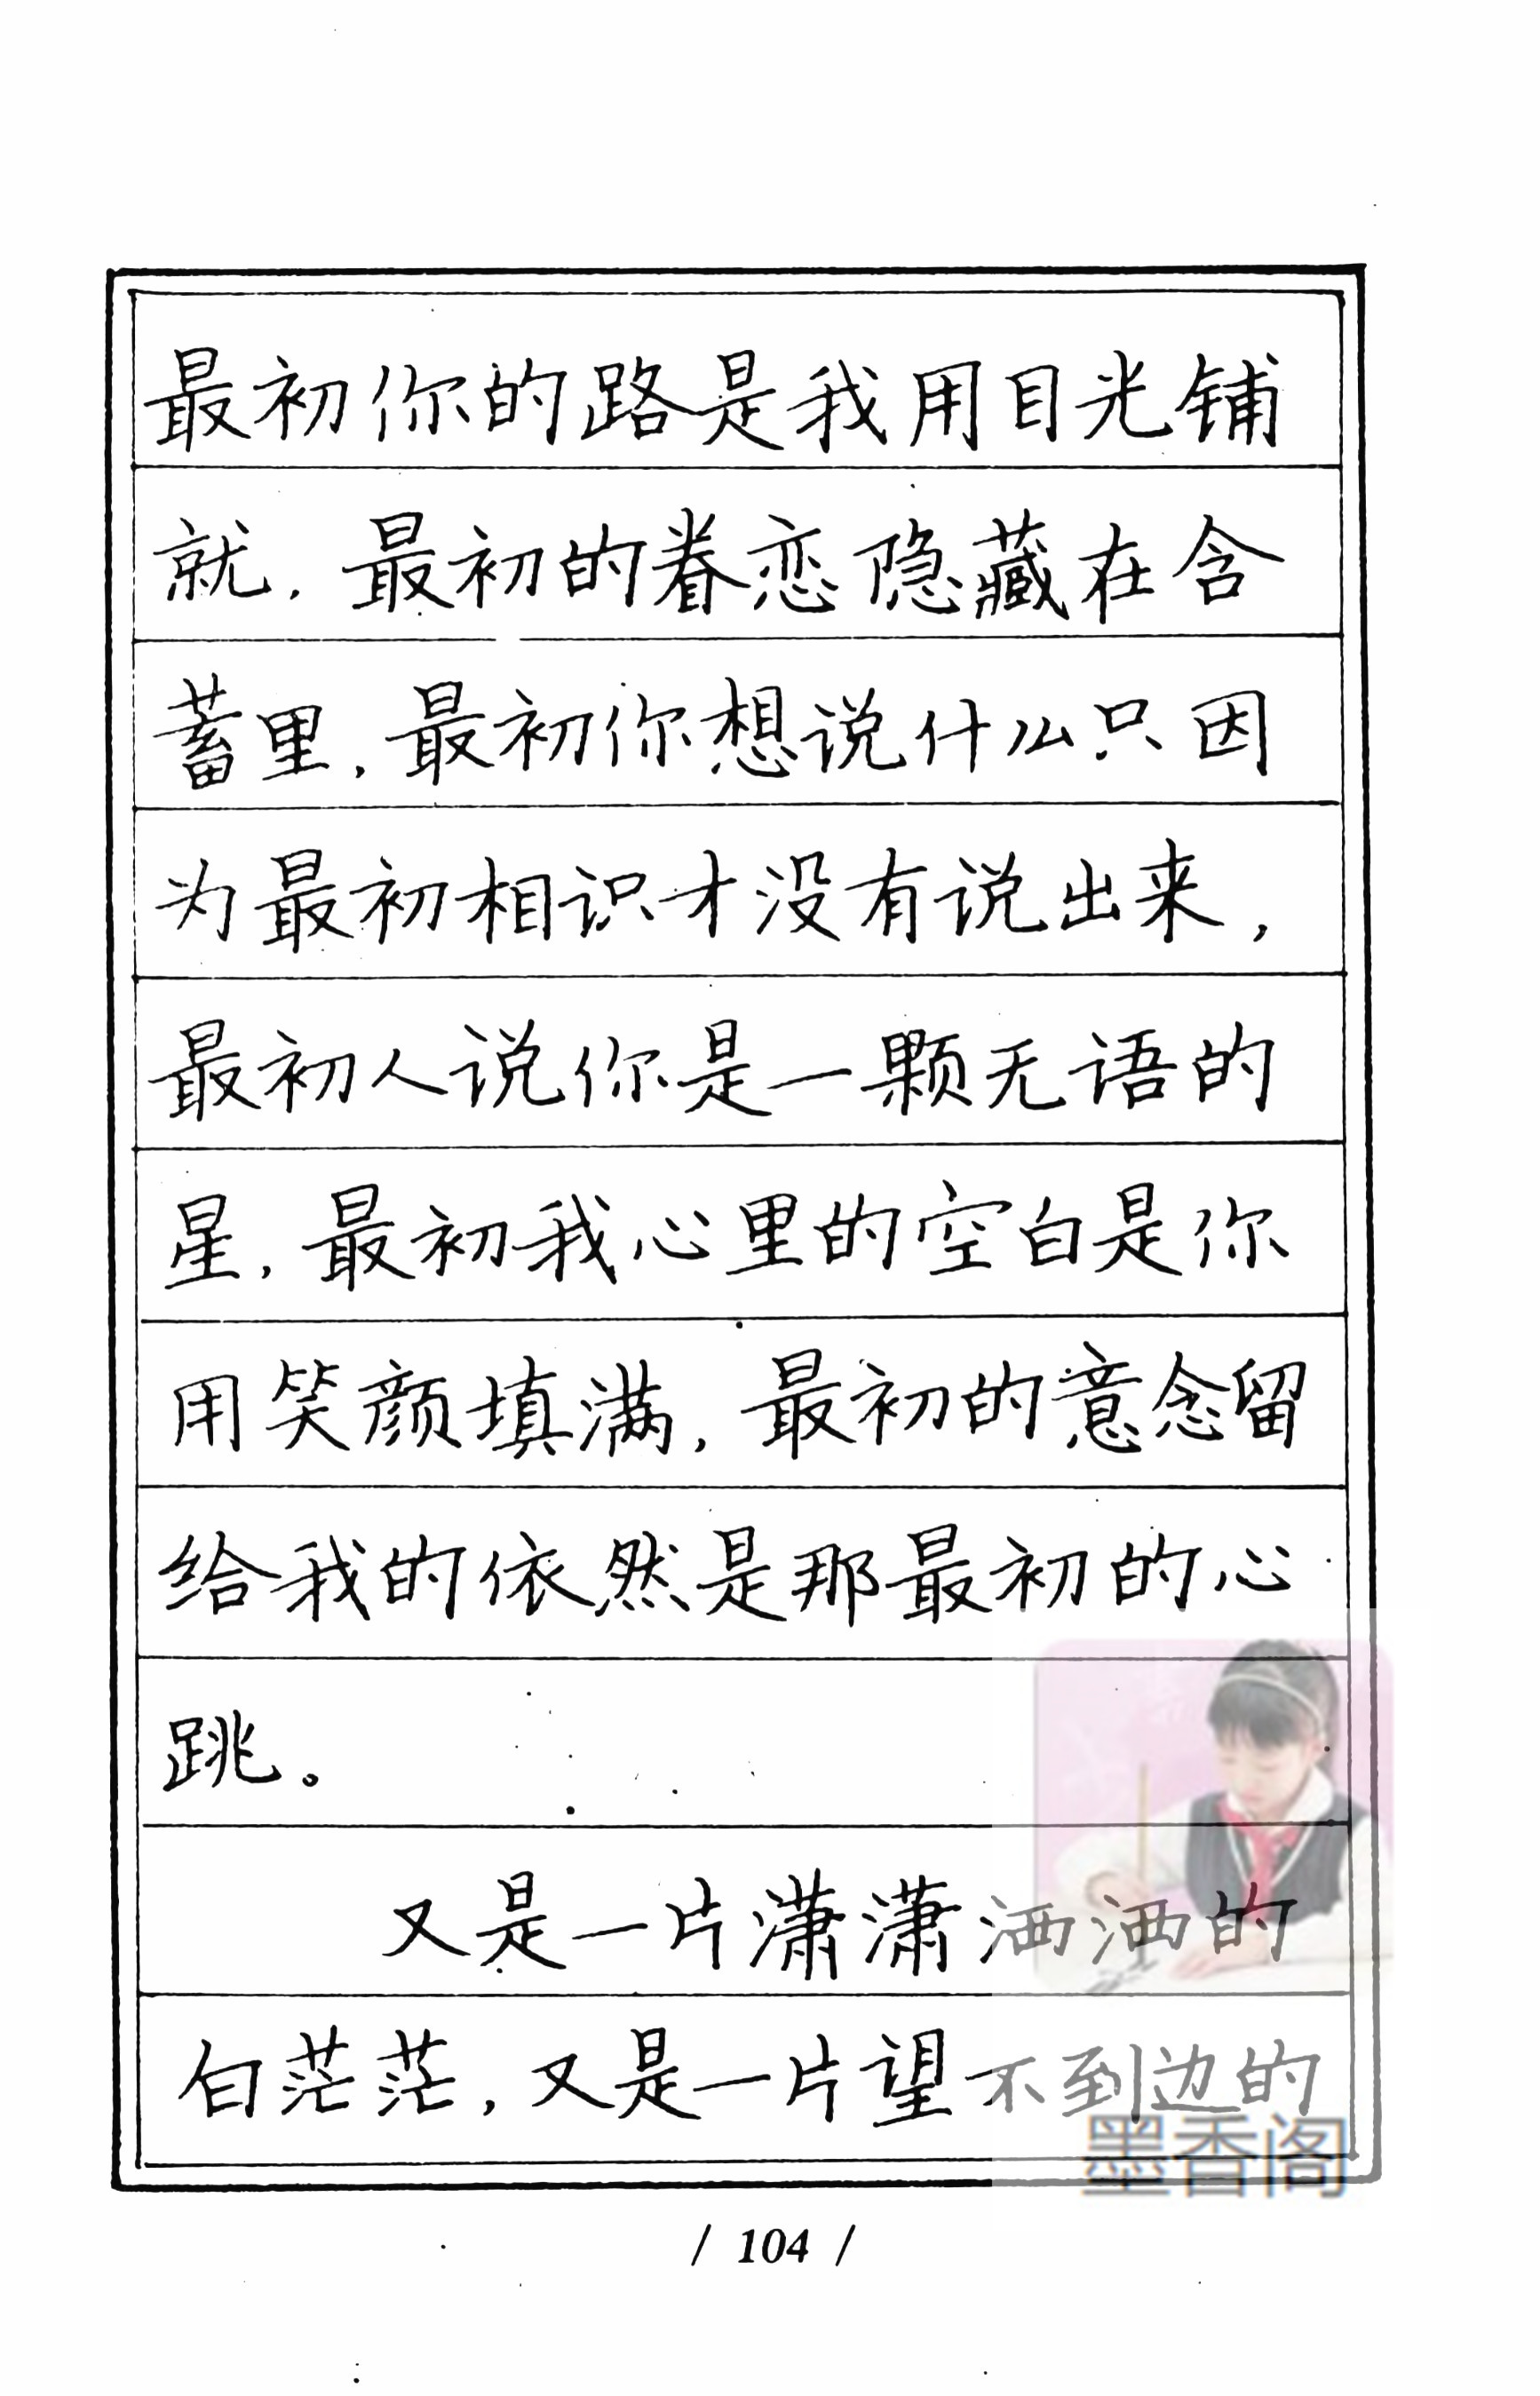 最初你的路是我用目光铺
就，最初的眷恋隐藏在含
蓄里，最初你想说什么只因
为最初相识才没有说出来，
最初人说你是一颗无语的
星，最初我心里的空白是你
用笑颜填满，最初的意念留
给我的依然是那最初的心
跳。
又是一片潇潇洒洒的
白茫茫，又是一片望不到边的
墨香阁
/ 104 /